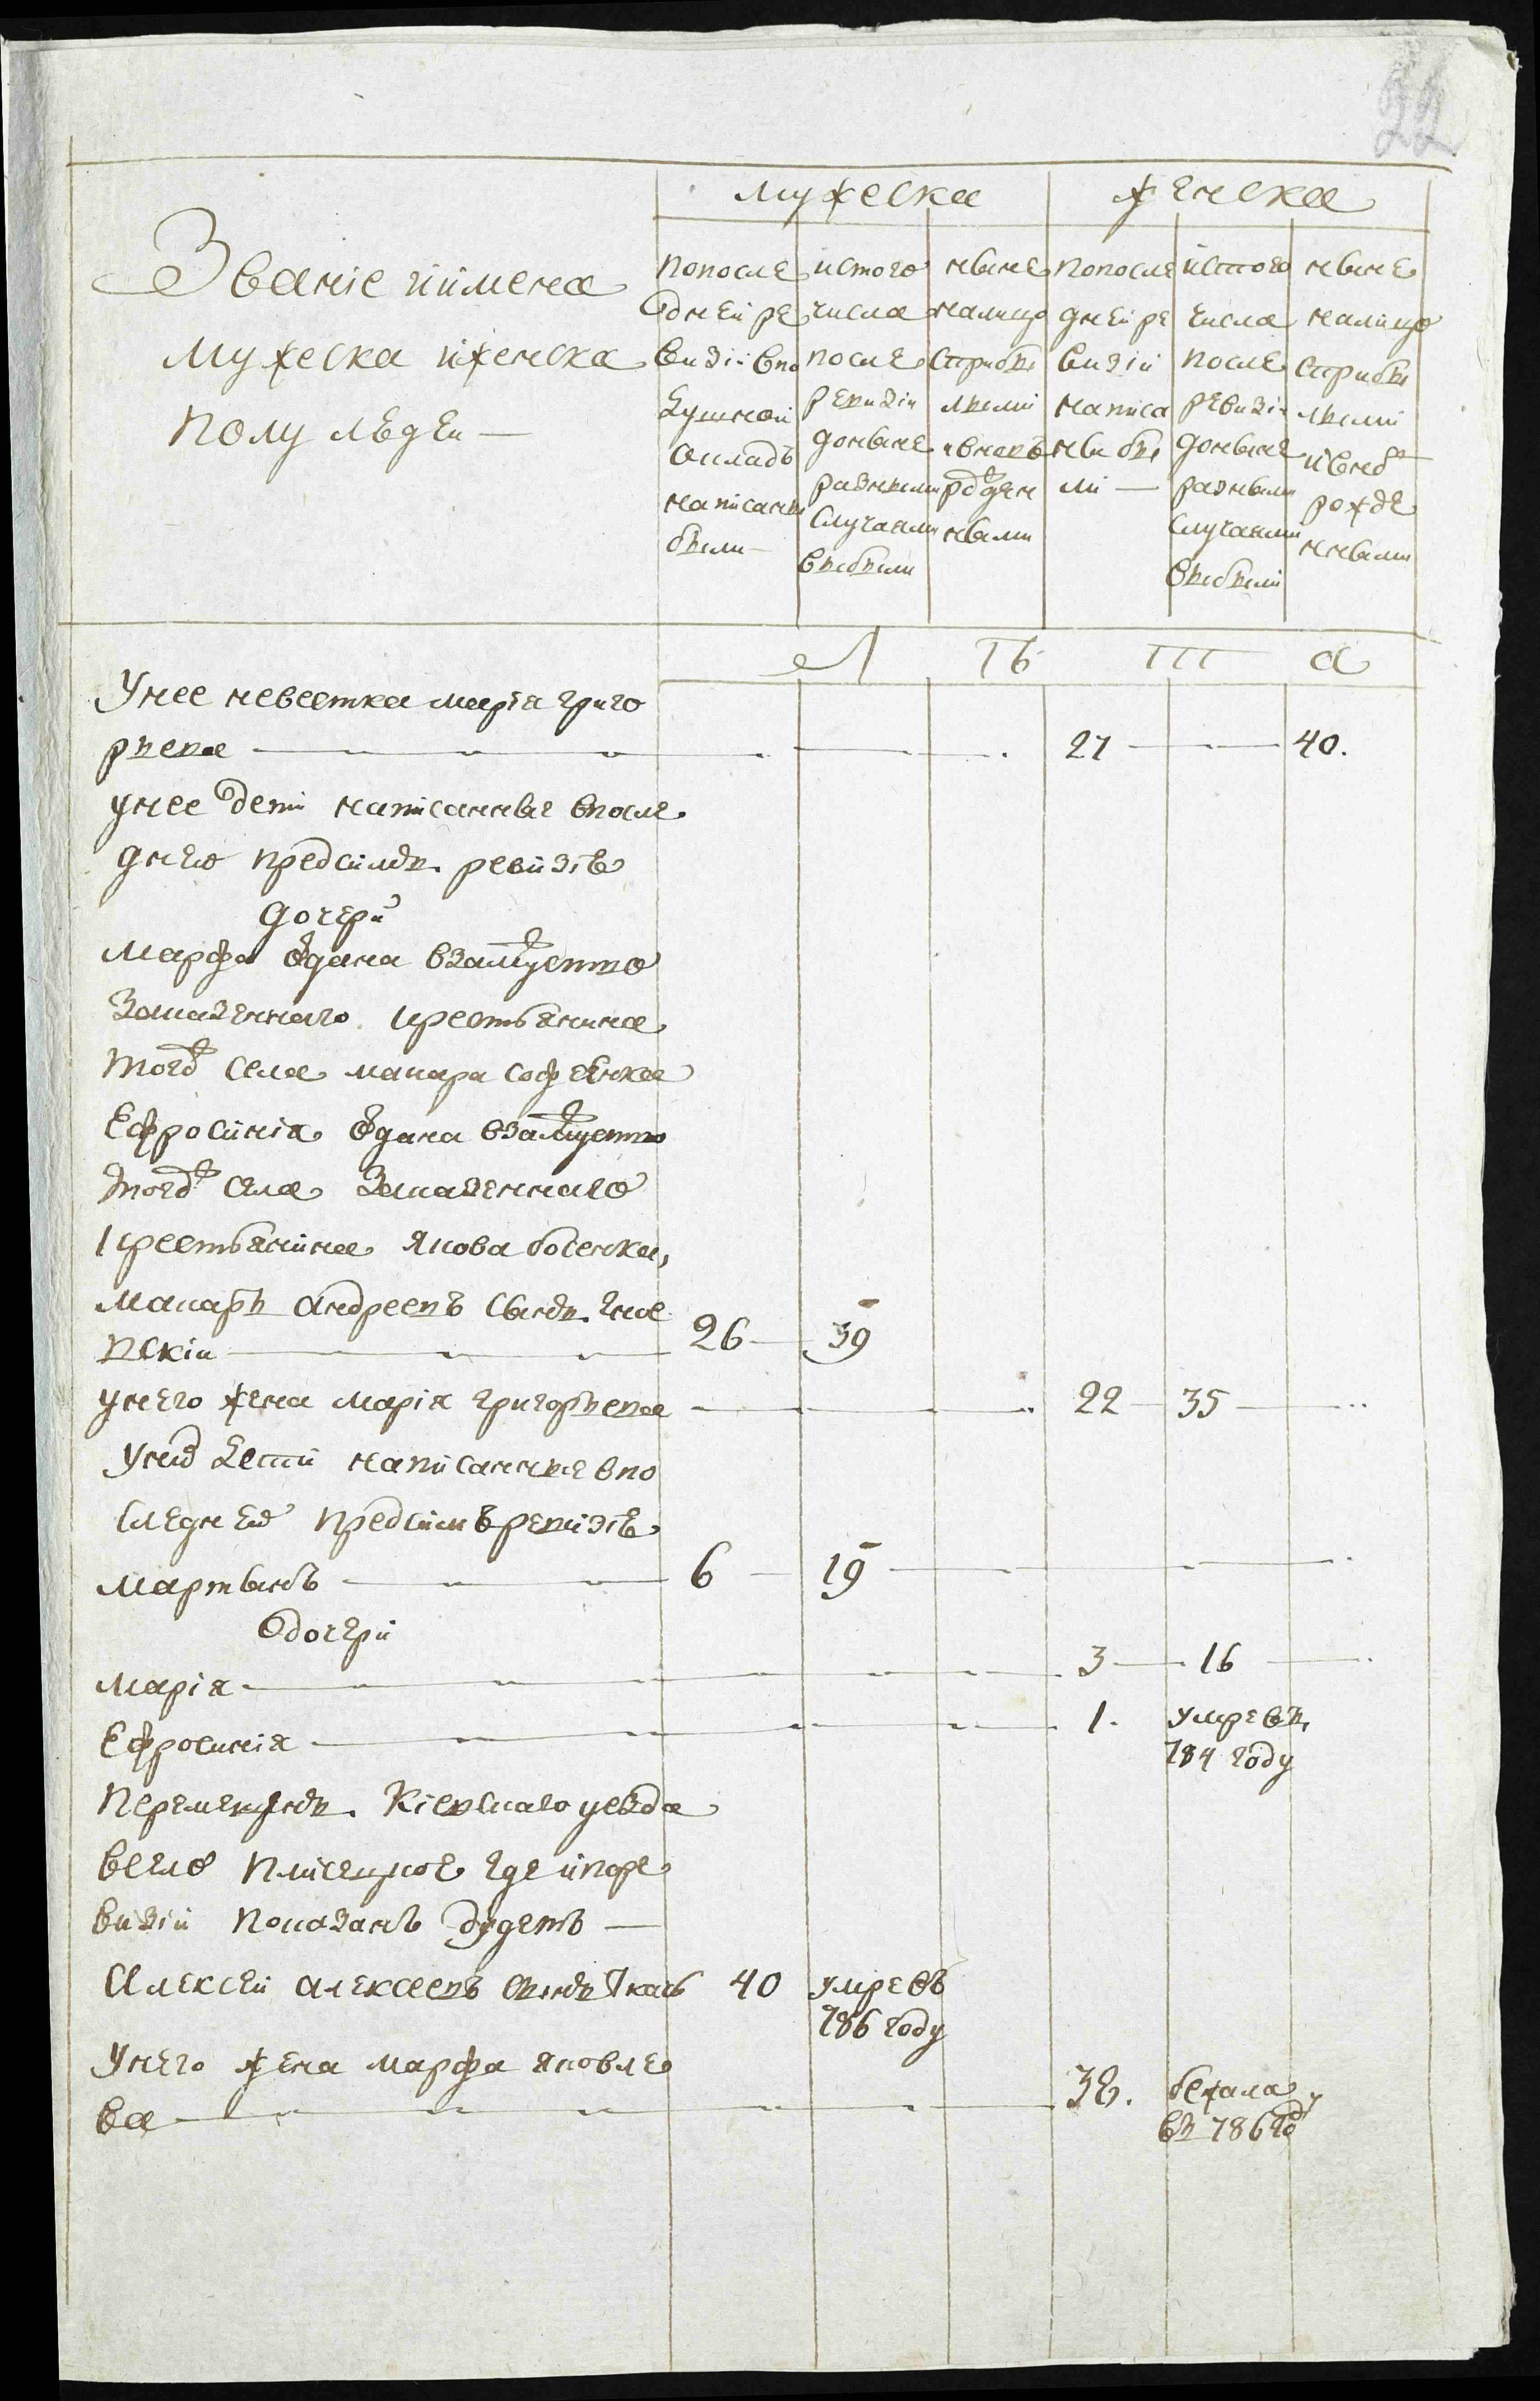 22
мужеска
женска
Званїе иимена
мужеска иженска
полу людеи —
попосле
дней ре
визїи впо
душной
окладъ
написаны
были —
истого
числа
после
ревизїи
доныне
разными
случаями
выбыли
ныне
налицо
сприбы
лыми
ивновь
рожден
ными
попосле
дней ре
визїи
написа
ны бы
ли —
истого
числа
после
ревизїи
доныне
разными
случаями
выбыли
ныне
налицо
сприбы
лыми
ивнов
рожде
нными
Л ѣ т а
Унее невестка марїя григо
рьева 27 40.
унее дети написанные впосле
днею предсимъ ревизїю
дочери
марфа одана взамужство
зоказенного крестьянина
тогож села макара софеенка
Ефросинїя одана взамужство
тогож села зоказенного
крестьянина якова босенка,
макаръ андреевъ сынъ
вскїи 26 39
унего жена марїя григорьева 22 35
уних дети написанные впо
следнею предсимъ ревизїю
мартынъ 6 19
дочери
марїя 3 16
Ефросинїя 1. умре въ
784 году
перемещенъ Кїевскаго уезда
всело плисецкое где ипоре
визїи показанъ будетъ —
Алексей алексеевъ сынъ Ткачъ 40 умре въ
786 году
Унего жена марфа яковле
ва 38. бежала
въ 786 году